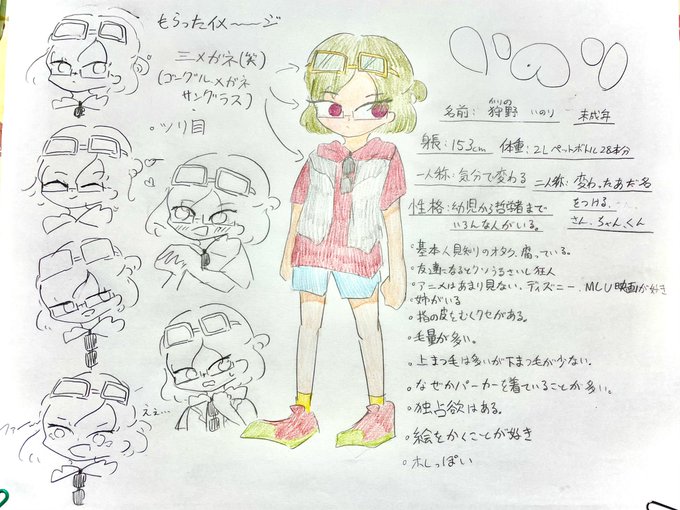 もらったイメ〜〜ジ
三メガネ(笑)
(ゴーグル.メガネ
サングラス)
・ツリ目
ええ…
名前: 狩野 いのり 未成年
かりの
身長: 153cm 体重: 2Lペットボトル28本分
一人称: 気分で変わる
二人称: 変わったあだ名
をつける.
さん、ちゃん、くん
性格: 幼児から哲学者まで
いろんな人がいる。
・基本人見知りのオタク、腐っている。
・友達になるとクソうるさいし狂人
・アニメはあまり見ない、ディズニー、MCU映画が好き
・姉がいる
・指の皮をむくクセがある。
・毛量が多い。
・上まつ毛は多いが下まつ毛が少ない.
・なぜかパーカーを着ていることが多い。
・独占欲はある。
・絵をかくことが好き
・ホしっぽい